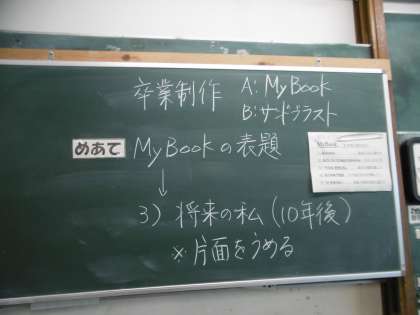 卒業制作 A: MyBook
B: サンドブラスト
めあて MyBookの表題
↓
3) 将来の私(10年後)
※片面をうめる
MyBook